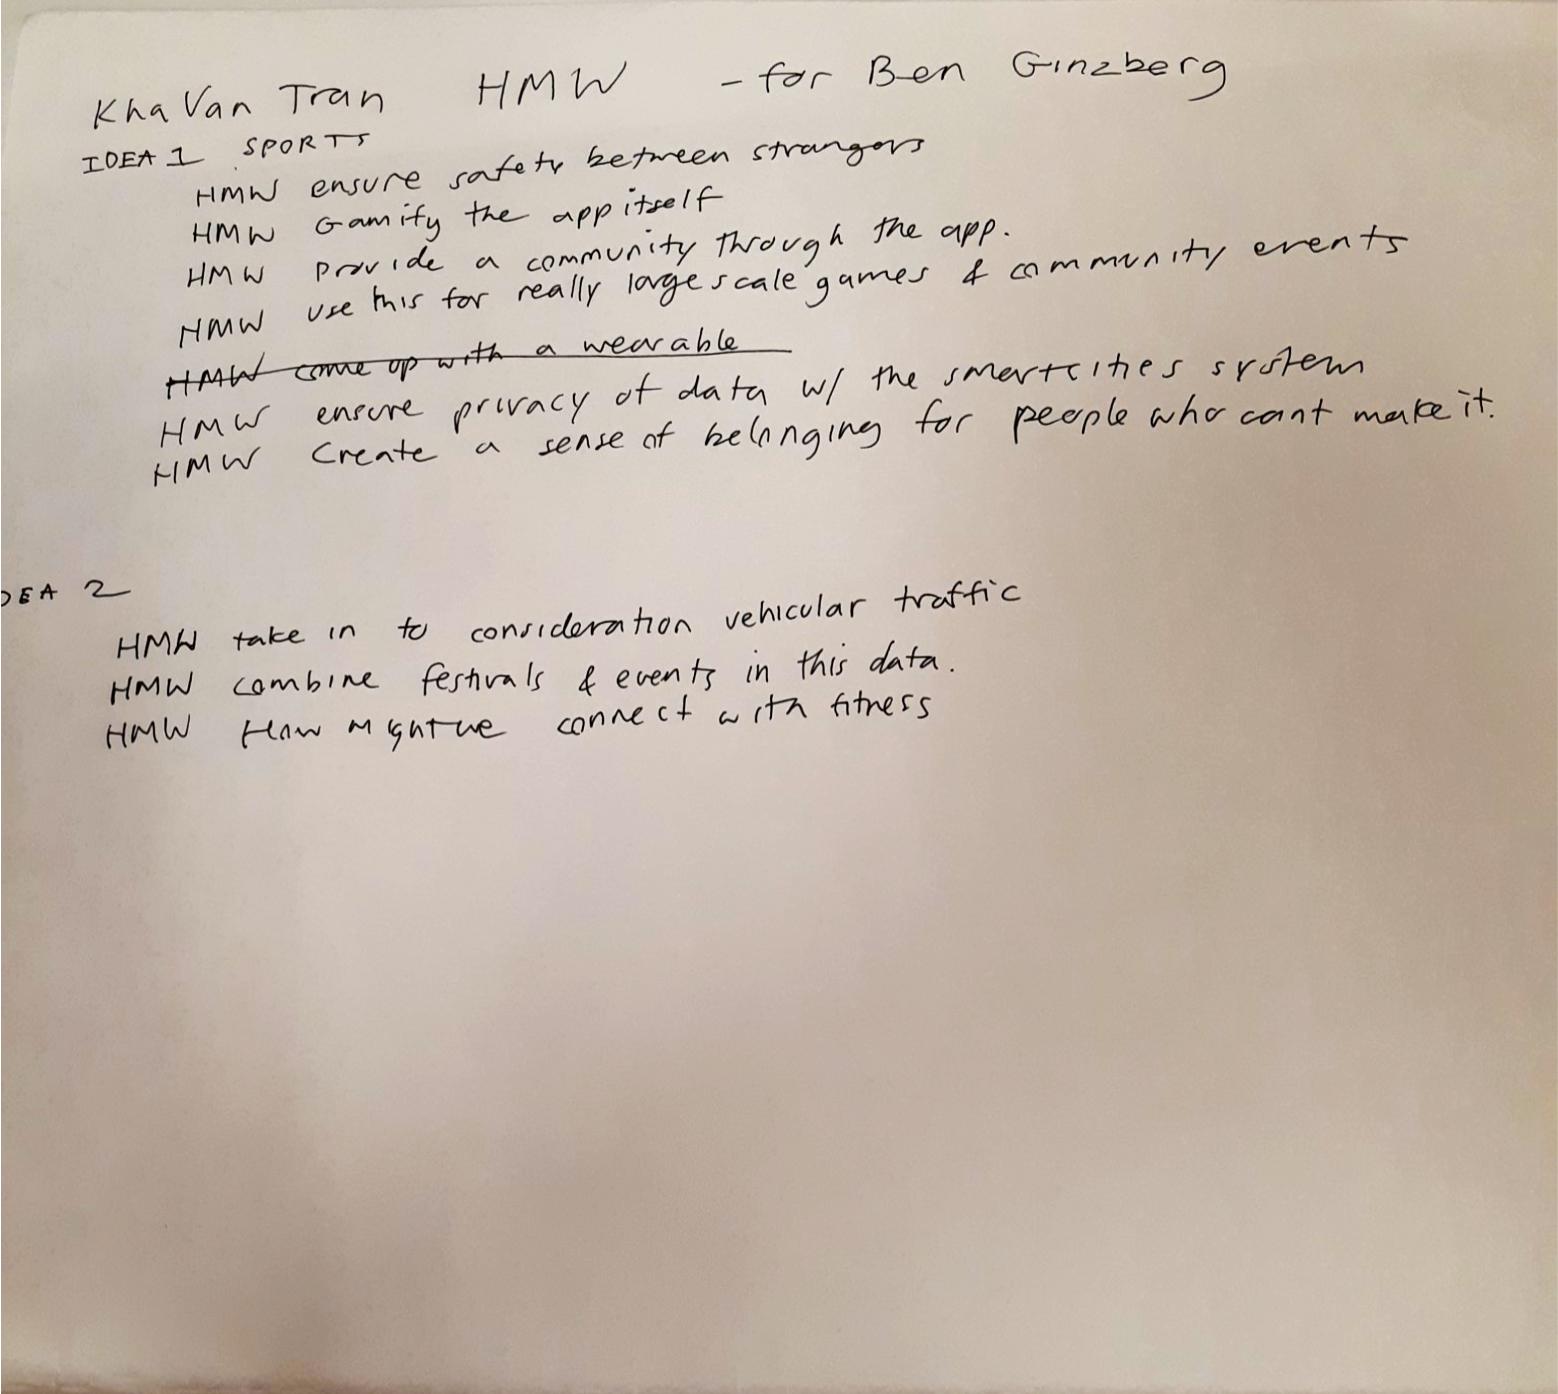 Kha Van Tran HMW - for Ben Ginzberg
IDEA 1 SPORTS
HMW ensure safety between strangers
HMW Gamify the app itself
HMW provide a community through the app.
HMW use this for really large scale games & community events
HMW come up with a wearable
HMW ensure privacy of data w/ the smartcities system
HMW Create a sense of belonging for people who cant make it.
DEA 2
HMW take in to consideration vehicular traffic
HMW combine festivals & events in this data.
HMW How might we connect with fitness